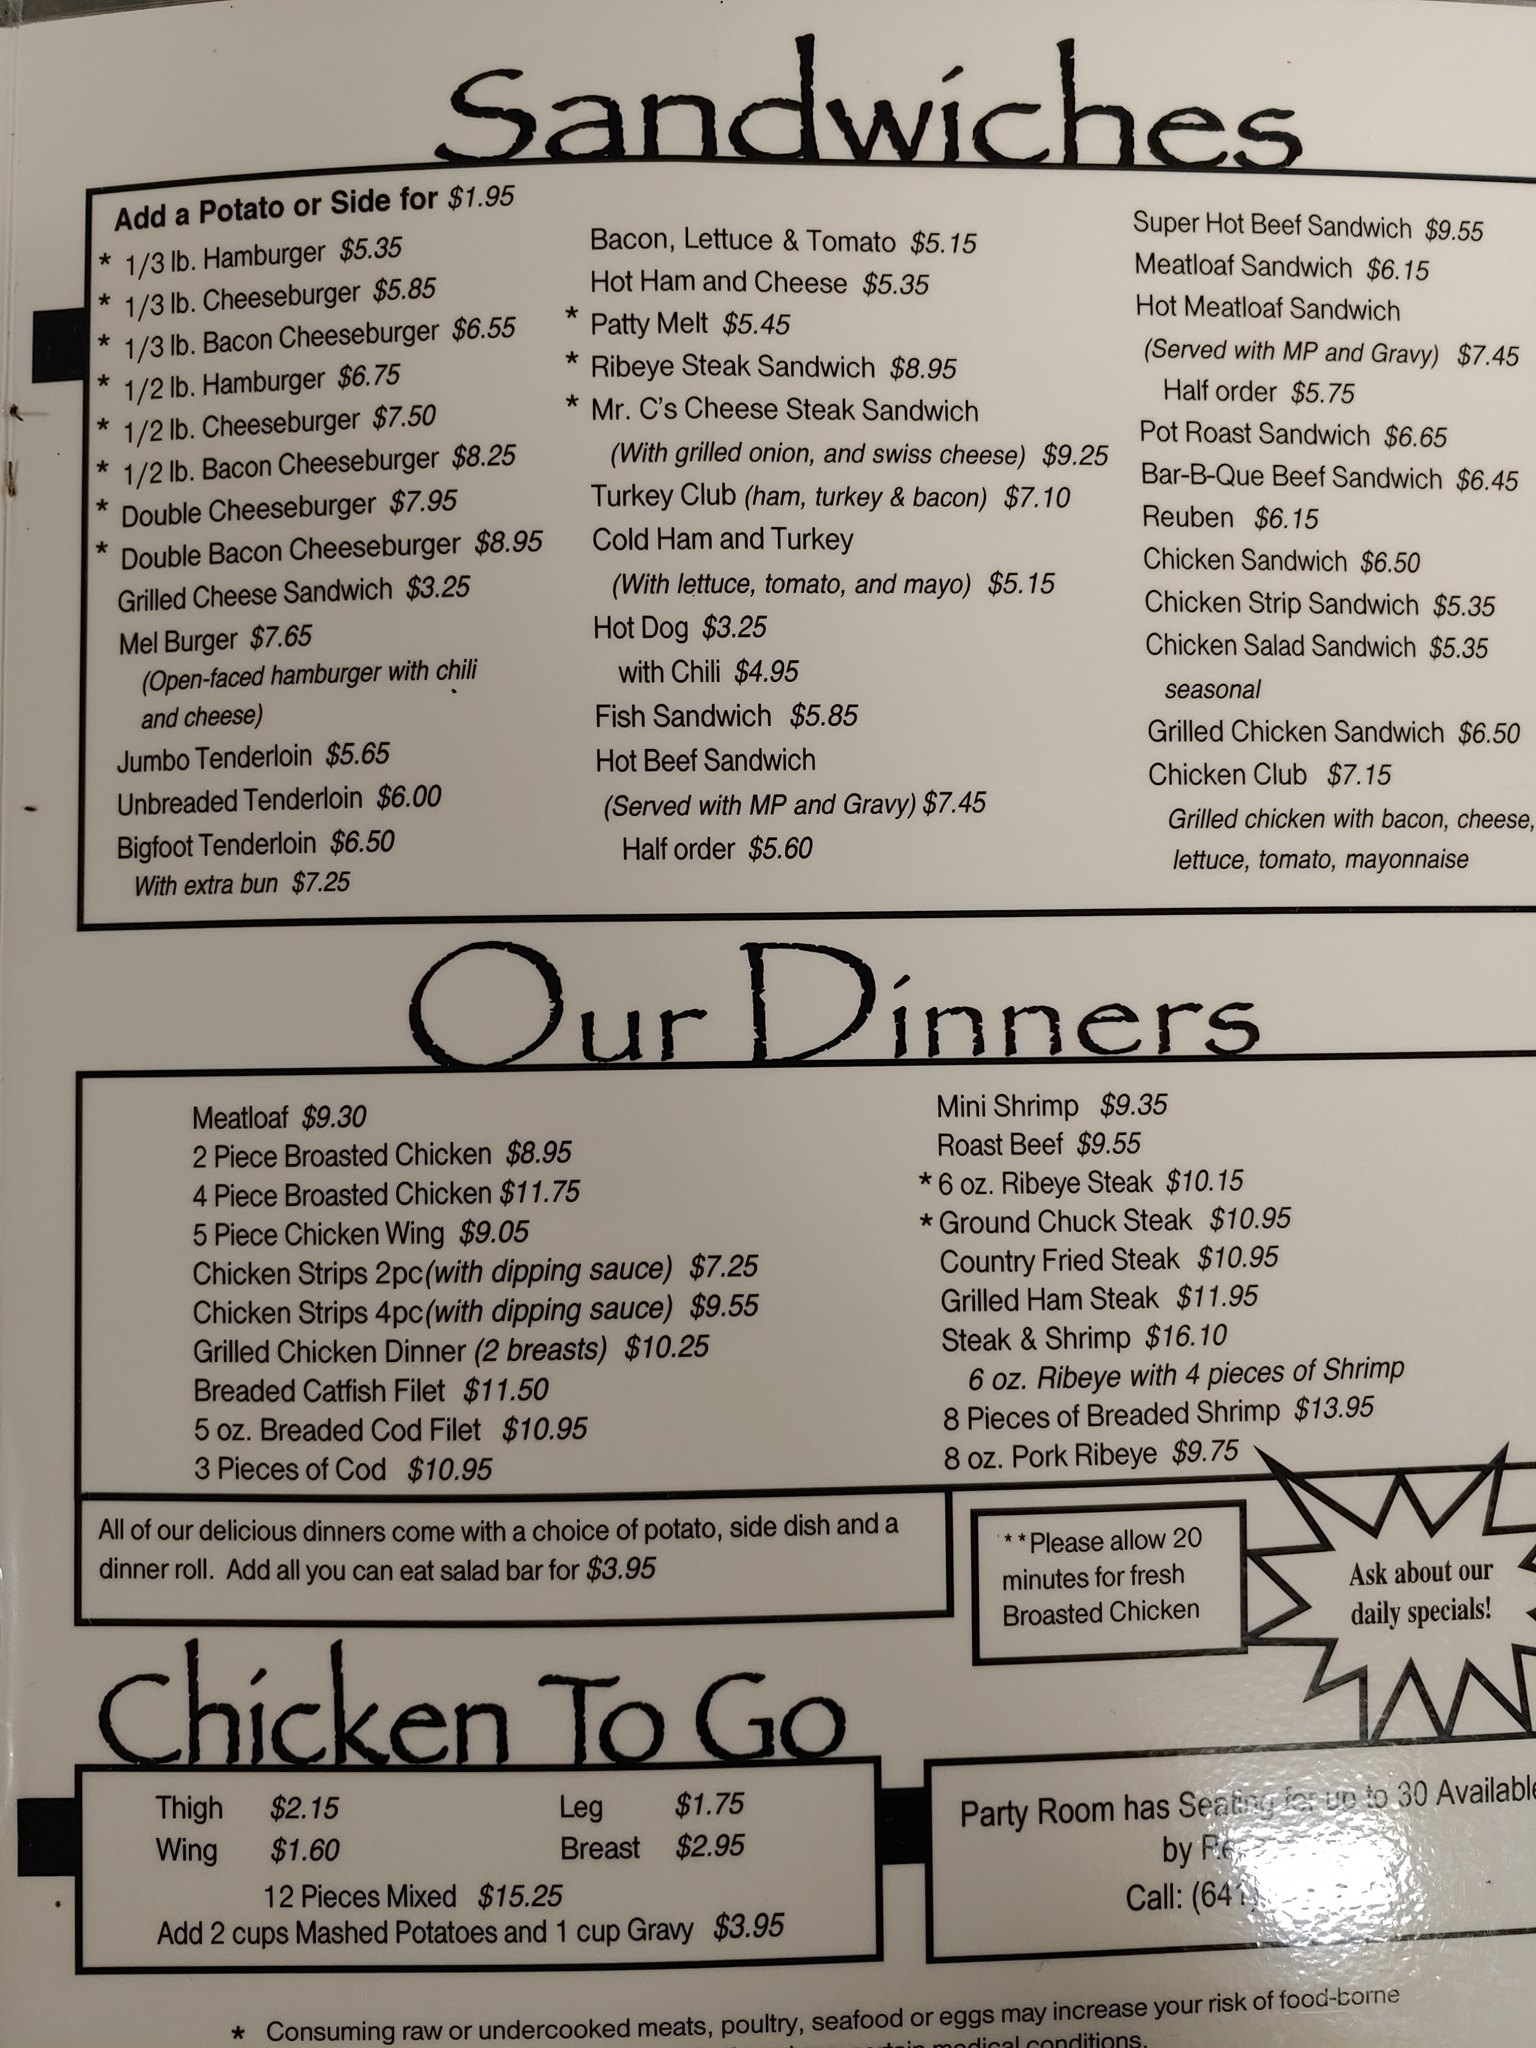 Sandwiches
Add a Potato or Side for $1.95
* 1/3 lb. Hamburger $5.35
* 1/3 lb. Cheeseburger $5.85
* 1/3 lb. Bacon Cheeseburger $6.55
* 1/2 lb. Hamburger $6.75
* 1/2 lb. Cheeseburger $7.50
* 1/2 lb. Bacon Cheeseburger $8.25
* Double Cheeseburger $7.95
* Double Bacon Cheeseburger $8.95
Grilled Cheese Sandwich $3.25
Mel Burger $7.65
(Open-faced hamburger with chili
and cheese)
Jumbo Tenderloin $5.65
Unbreaded Tenderloin $6.00
Bigfoot Tenderloin $6.50
With extra bun $7.25
Bacon, Lettuce & Tomato $5.15
Hot Ham and Cheese $5.35
* Patty Melt $5.45
* Ribeye Steak Sandwich $8.95
* Mr. C's Cheese Steak Sandwich
(With grilled onion, and swiss cheese) $9.25
Turkey Club (ham, turkey & bacon) $7.10
Cold Ham and Turkey
(With lettuce, tomato, and mayo) $5.15
Hot Dog $3.25
with Chili $4.95
Fish Sandwich $5.85
Hot Beef Sandwich
(Served with MP and Gravy) $7.45
Half order $5.60
Super Hot Beef Sandwich $9.55
Meatloaf Sandwich $6.15
Hot Meatloaf Sandwich
(Served with MP and Gravy) $7.45
Half order $5.75
Pot Roast Sandwich $6.65
Bar-B-Que Beef Sandwich $6.45
Reuben $6.15
Chicken Sandwich $6.50
Chicken Strip Sandwich $5.35
Chicken Salad Sandwich $5.35
seasonal
Grilled Chicken Sandwich $6.50
Chicken Club $7.15
Grilled chicken with bacon, cheese,
lettuce, tomato, mayonnaise
Our Dinners
Meatloaf $9.30
2 Piece Broasted Chicken $8.95
4 Piece Broasted Chicken $11.75
5 Piece Chicken Wing $9.05
Chicken Strips 2pc(with dipping sauce) $7.25
Chicken Strips 4pc(with dipping sauce) $9.55
Grilled Chicken Dinner (2 breasts) $10.25
Breaded Catfish Filet $11.50
5 oz. Breaded Cod Filet $10.95
3 Pieces of Cod $10.95
Mini Shrimp $9.35
Roast Beef $9.55
* 6 oz. Ribeye Steak $10.15
* Ground Chuck Steak $10.95
Country Fried Steak $10.95
Grilled Ham Steak $11.95
Steak & Shrimp $16.10
6 oz. Ribeye with 4 pieces of Shrimp
8 Pieces of Breaded Shrimp $13.95
8 oz. Pork Ribeye $9.75
All of our delicious dinners come with a choice of potato, side dish and a
dinner roll. Add all you can eat salad bar for $3.95
**Please allow 20
minutes for fresh
Broasted Chicken
Ask about our
daily specials!
Chicken To Go
Thigh $2.15
Leg $1.75
Wing $1.60
Breast $2.95
12 Pieces Mixed $15.25
Add 2 cups Mashed Potatoes and 1 cup Gravy $3.95
Party Room has Seating for up to 30 Available
by
Call: (641)
* Consuming raw or undercooked meats, poultry, seafood or eggs may increase your risk of food-borne
medical conditions.